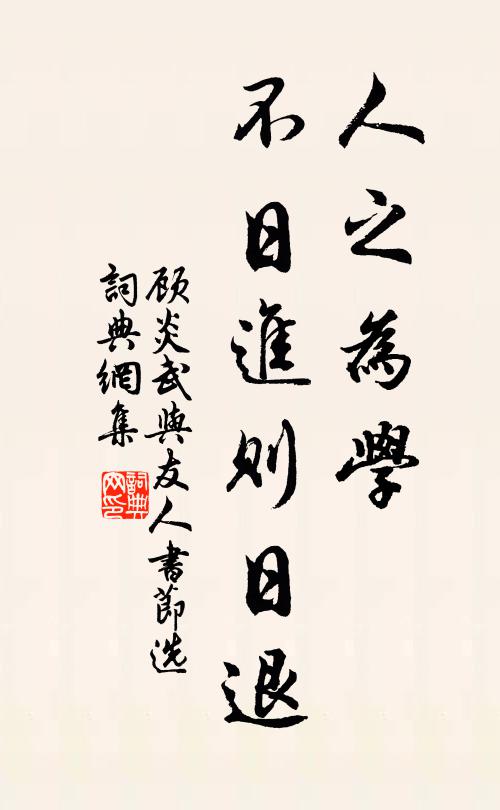 人之為學
不日進則日退
顾炎武與友人書節选
詞典網集
詞典
网印